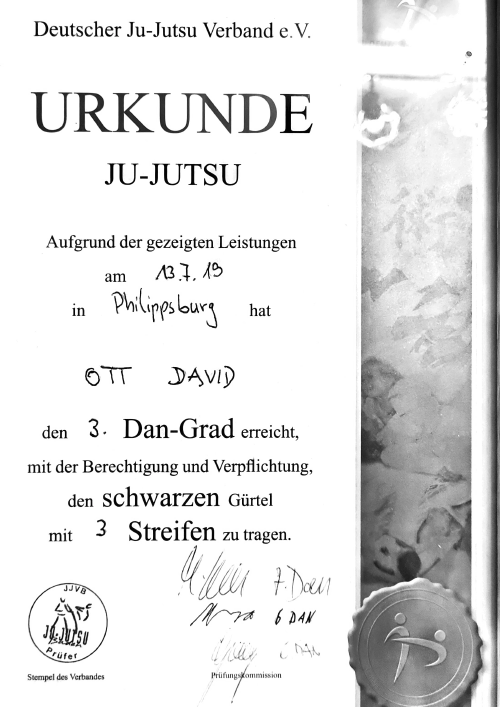 Deutscher Ju-Jutsu Verband e.V.
URKUNDE
JU-JUTSU
Aufgrund der gezeigten Leistungen
am 13.7.19
in Philippsburg hat
OTT DAVID
den 3. Dan-Grad erreicht,
mit der Berechtigung und Verpflichtung,
den schwarzen Gürtel
mit 3 Streifen zu tragen.
7. Dan
6 DAN
DAN
JJVB
JU-JUTSU
Prüfer
Stempel des Verbandes
Prüfungskommission